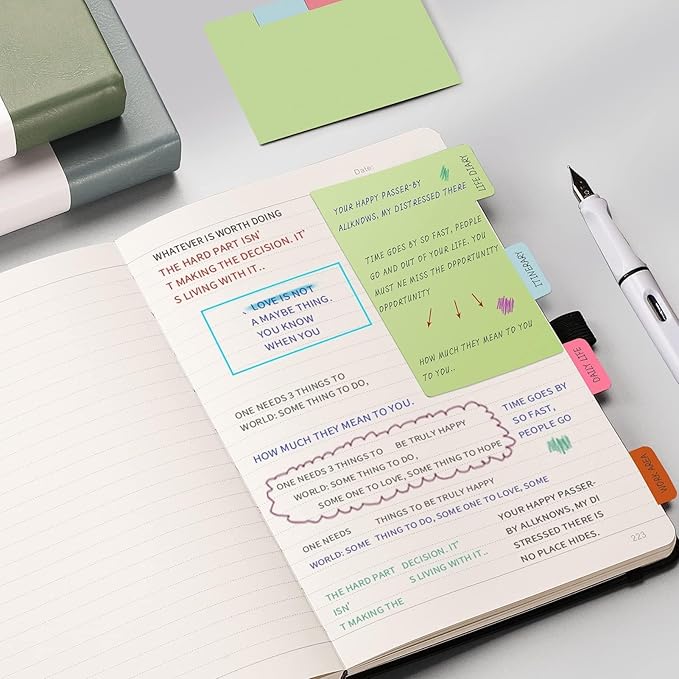 Date:
WHATEVER IS WORTH DOING
THE HARD PART ISN'
T MAKING THE DECISION. IT'
S LIVING WITH IT..
LOVE IS NOT
A MAYBE THING.
YOU KNOW
WHEN YOU
ONE NEEDS 3 THINGS TO
WORLD: SOME THING TO DO,
HOW MUCH THEY MEAN TO YOU.
ONE NEEDS 3 THINGS TO BE TRULY HAPPY
WORLD: SOME THING TO DO,
SOME ONE TO LOVE, SOME THING TO HOPE
ONE NEEDS THINGS TO BE TRULY HAPPY
WORLD: SOME THING TO DO, SOME ONE TO LOVE, SOME
THE HARD PART DECISION. IT'
ISN' S LIVING WITH IT..
T MAKING THE
YOUR HAPPY PASSER-BY
ALLKNOWS, MY DISTRESSED THERE
TIME GOES BY SO FAST, PEOPLE
GO AND OUT OF YOUR LIFE. YOU
MUST NE MISS THE OPPORTUNITY
OPPORTUNITY
HOW MUCH THEY MEAN TO YOU
TO YOU..
TIME GOES BY
SO FAST,
PEOPLE GO
YOUR HAPPY PASSER-
BY ALLKNOWS, MY DI
STRESSED THERE IS
NO PLACE HIDES.
223
LIFE DIARY
ITINERARY
DAILY LIFE
WORK AREA